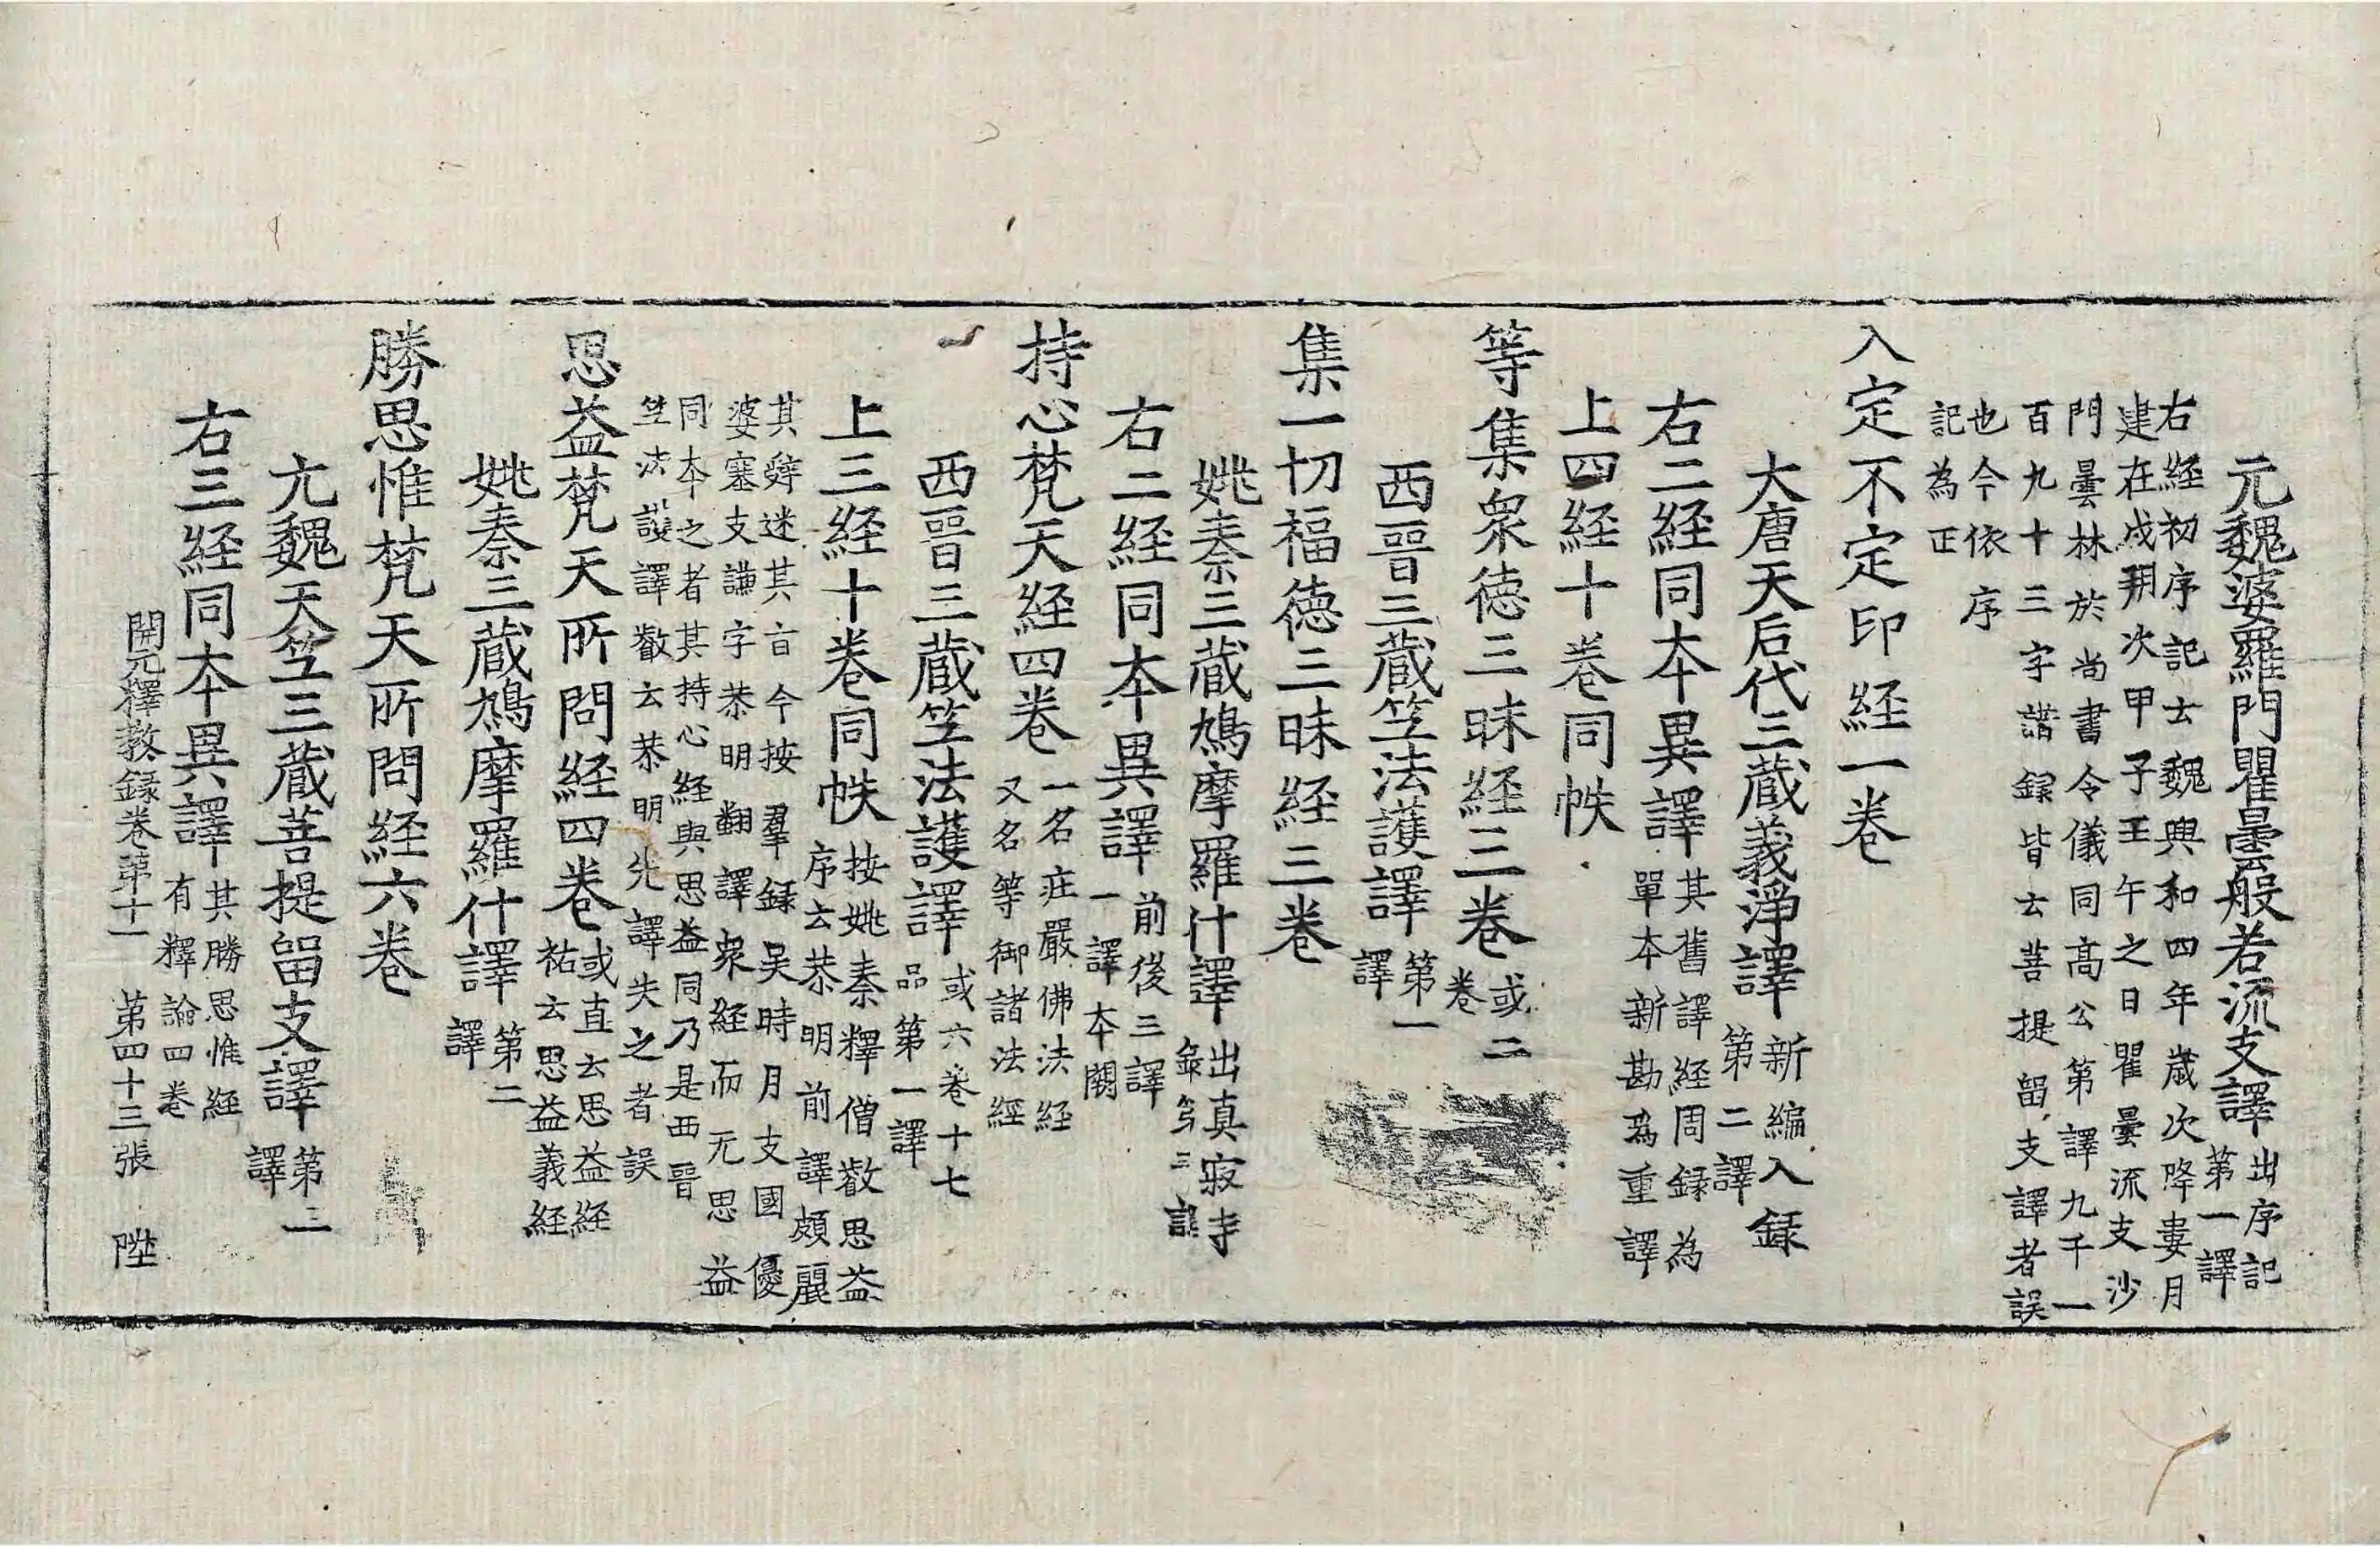 元魏婆羅門瞿曇般若流支譯出序記
第一譯
右経初序記云魏興和四年歳次降婁月
建在戌朔次甲子壬午之日瞿曇流支沙
門曇林於尚書令儀同髙公第譯九千一
百九十三字諸録皆云菩提留支譯者誤
也今依序
記為正
入定不定印経一巻
大唐天后代三蔵義淨譯新編入録
第二譯
右二経同本異譯其舊譯経周録為
單本新勘為重譯
上四経十巻同帙
等集衆徳三昧経三巻或二
巻
西晉三蔵竺法護譯第一
譯
集一切福徳三昧経三巻
姚秦三蔵鳩摩羅什譯出真寂寺
録第三譯
右二経同本異譯前後三譯
一譯本闕
持心梵天経四巻一名庄嚴佛法経
又名等御諸法經
西晉三蔵竺法護譯或六巻十七
品第一譯
上三経十巻同帙按姚秦釋僧叡思益
序云恭明前譯頗麗
其辤迷其旨今按羣録吴時月支國優
婆塞支謙字恭明翻譯衆経而无思益
同本之者其持心経與思益同乃是西晉
竺法護譯叡云恭明先譯失之者誤
思益梵天所問経四巻或直云思益経
祐云思益義経
姚秦三蔵鳩摩羅什譯第二
譯
勝思惟梵天所問経六巻
元魏天竺三蔵菩提留支譯第三
譯
右三経同本異譯其勝思惟経
有釋論四巻
開元釋教録巻第十一 第四十三張 陞